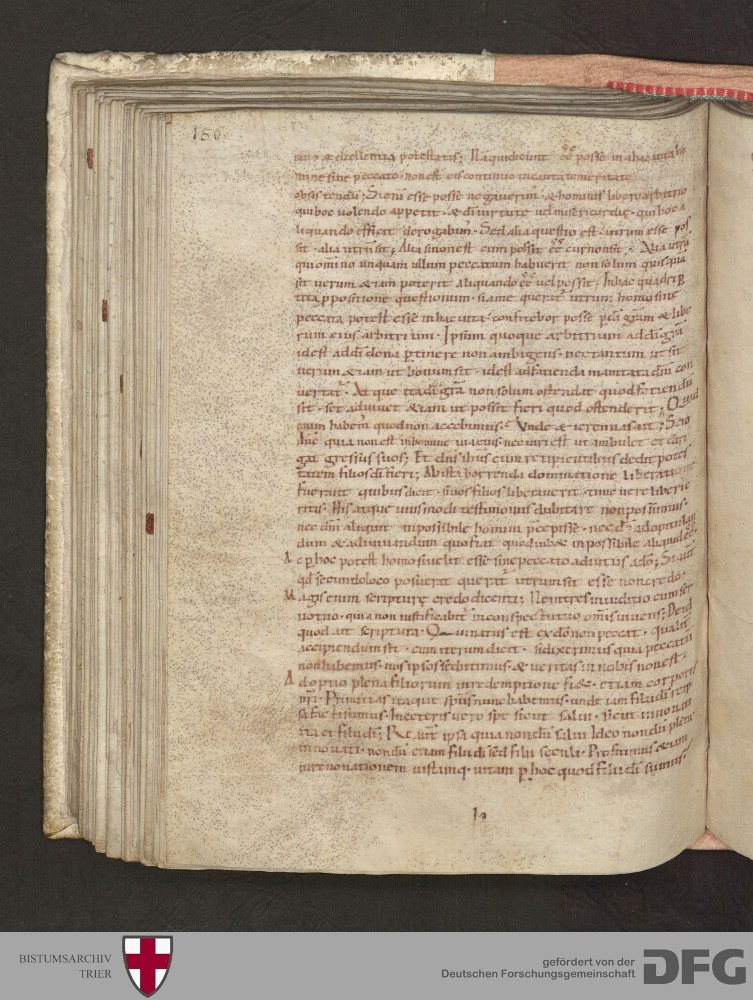 150
nitio & excellentia potestatis; Nam qui dicunt ēē posse in hac uita ho
mine sine peccato · non est eis continuo incauta temeritate
obsistendū; Si enī esse posse negauerim᷒ · & hominis libero arbitrio
qui hoc uolendo appetit · & dī uirtute uel misericordię · qui hoc a
liquando efficit derogabim᷒ · Sed alia questio est · utrum esse pos
sit · alia utrū sit; Alia si non est cum possit ēē cur non sit · Alia utrū
qui omnino unquam ullum peccatum habuerit non solum quisquā
sit uerum etiam poterit aliquando ēē uel possit; In hac quadriper
tita ppositione questionum · si a me querat᷒ utrum homo sine
peccato potest esse in hac uita · confitebor posse p dī grām & libe
rum eius arbitrium · Ipsum quoque arbitrium ad dī grā
id est ad dī dona ptinere non ambigens · nec tantum ut sit
uerum etiam ut bonum sit · id est ad facienda mandata dnī con
uertat᷒ · Atque ita dī grā non solum ostendat quod faciendū
sit · set adiuuet etiam ut possit fieri quod ostenderit; Quid
enim habem᷒ quod non accepimus; Unde & ieremias ait; Scio
dn̄e quia non est in homine uia eius · nec uiri est ut ambulet et diri
gat gressus suos;
tatem filios dī fieri; Ab ista horrenda dominatione liberati
fuerant quibus dicit · si uos filius liberauerit · tunc uere liberi e
ritis · His atque huiusmodi testimoniis dubitare non possumus ·
nec dnm aliquit inpossibile homini pcepisse · nec dō ad opitulan
dum & adiuuandum quo fiat quod iubet inpossibile aliquid ēē
Ac p hoc potest homo si uelit esse sine peccato adiutus a dō; Si aut
qd secundo loco posuerā queritur utrum sit esse non credo ·
Magis enim scripturę credo dicenti; Ne intres in iuditio cum ser
uo tuo · quia non iustificabit᷒ in conspectu tuo omīs uiuens;
quod ait scriptura · Qui natus est ex dō non peccat · qualit
accipiendum sit · cum iterum dicit · si dixerimus quia peccatū
non habemus · nos ipsos seducimus · & ueritas in nobis non est ·
Adoptio plena filiorum in redemptione fiet · etiam corporis
nrī · Primitias itaque spūs nunc habemus · unde iam filii dī reip
sa facti sumus · In ceteris uero spe sicut salui · sicut innoua
ti et filii dī; Re aut ipsa quia nondū salui · Ideo nondū plene
innouati · nondū etiam filii dī sed filii seculi · Proficimus etiam
in renouationem iustamq · uitam p hoc quod filii dī sumus ·
BISTUMSARCHIV
TRIER
gefördert von der
Deutschen Forschungsgemeinschaft
DFG